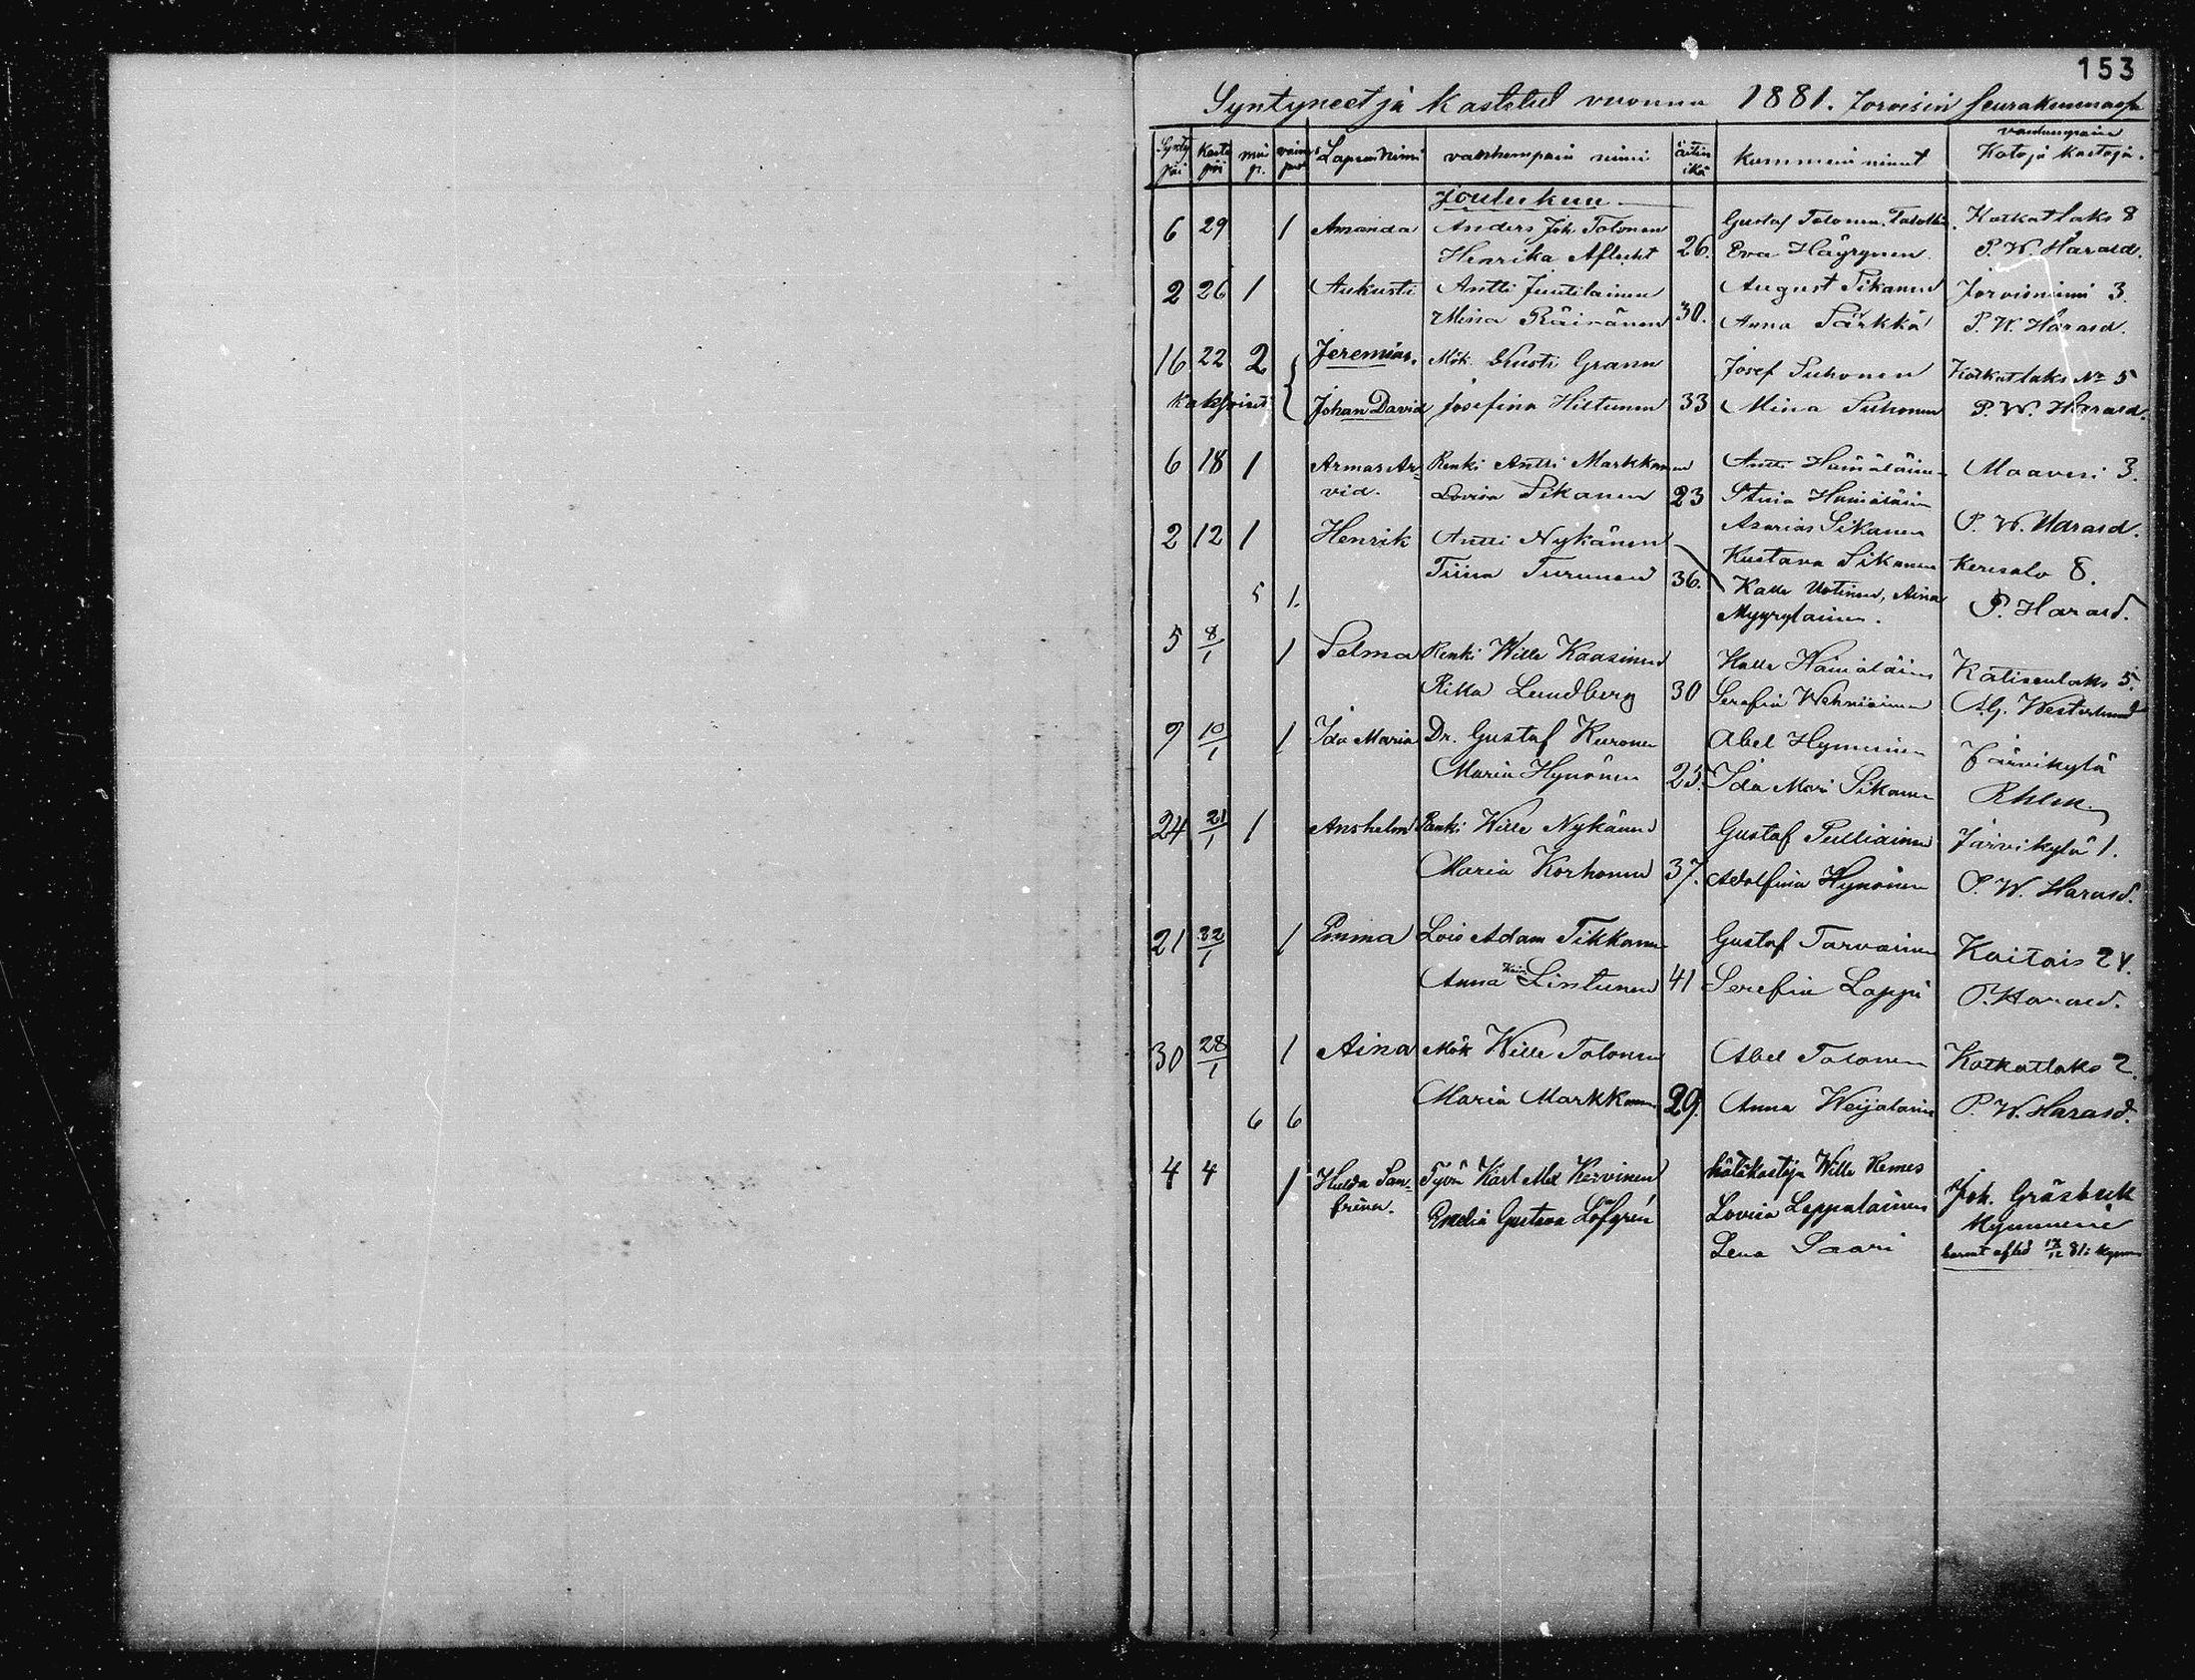 153
Syntyneet ja Kastetut vuonna 1881. Jorvisin Seurakunnassa
Synty päi Kaste päi mie p. vaimo puol Lapsen Nimi vanhempain nimi äitin ikä kummein nimet vanhempain Koto ja kastaja.
Joulukuu
6 29 1 Amanda Anders Joh. Tolonen Gustaf Tolonen, Kotkatlaks 8
Henrika Aflecht 26. Eva Häyrynen P. W. Harald.
2 26 1 Aukusti Antti Juutilainen August Sikanen Jorvisniemi 3.
Mina Räisänen 30. Anna Särkkä P. W. Harald.
16 22 2 Jeremias. Mök. Kusti Grann Josef Suhonen Kotkatlaks No 5
Kaksoiset Johan David Josefina Hiltunen 33 Mina Suhonen P. W. Harald.
6 18 1 Armas Ar- Renki Antti Markkanen Antti Hämäläinen Maavesi 3.
vid. Lovisa Sikanen 23 Stina Hämäläin
2 12 1 Henrik Antti Nykänen Asarias Sikanen P. W. Harald.
Tiina Turunen 36. Kustava Sikanen Kerisalo 8.
5 1. Kalle Uotinen, Aina P. Harald.
Myyryläinen.
5 8/1 1 Selma Renki Wille Kaasinen Kalle Hämäläinen Katisenlaks 5.
Riika Lundberg 30 Serafia Wehniäinen A.G. Westerlund
9 10/1 1 Ida Maria Dr. Gustaf Kuronen Abel Hynninen Järvikylä
Maria Hynönen 25. Ida Mari Sikanen
24 21/1 1 Anshelm Renki Wille Nykänen Gustaf Pulliainen Järvikylä 1.
Maria Korhonen 37. Adolfina Hynönen P. W. Harald.
21 22/1 1 Emma Lois Adam Tikkanen Gustaf Tarvainen Kaitais 24.
Anna Lintunen 41 Serefia Lappi P. Harald.
30 28/1 1 Aina Mök Wille Tolonen Abel Tolonen Kotkatlaks 2.
Maria Markkanen 29. Anna Weijalainen P. W. Harald.
6 6
4 4 1 Hulda San- Työm Karl Alex Kervinen hätäkastaja Wille Remes
frina. Emelia Gustava Löfgrén Lovisa Lappalainen Joh. Gråsbeck
Lena Saari Kymmene
barnet afled 17/12 81 i Kymm